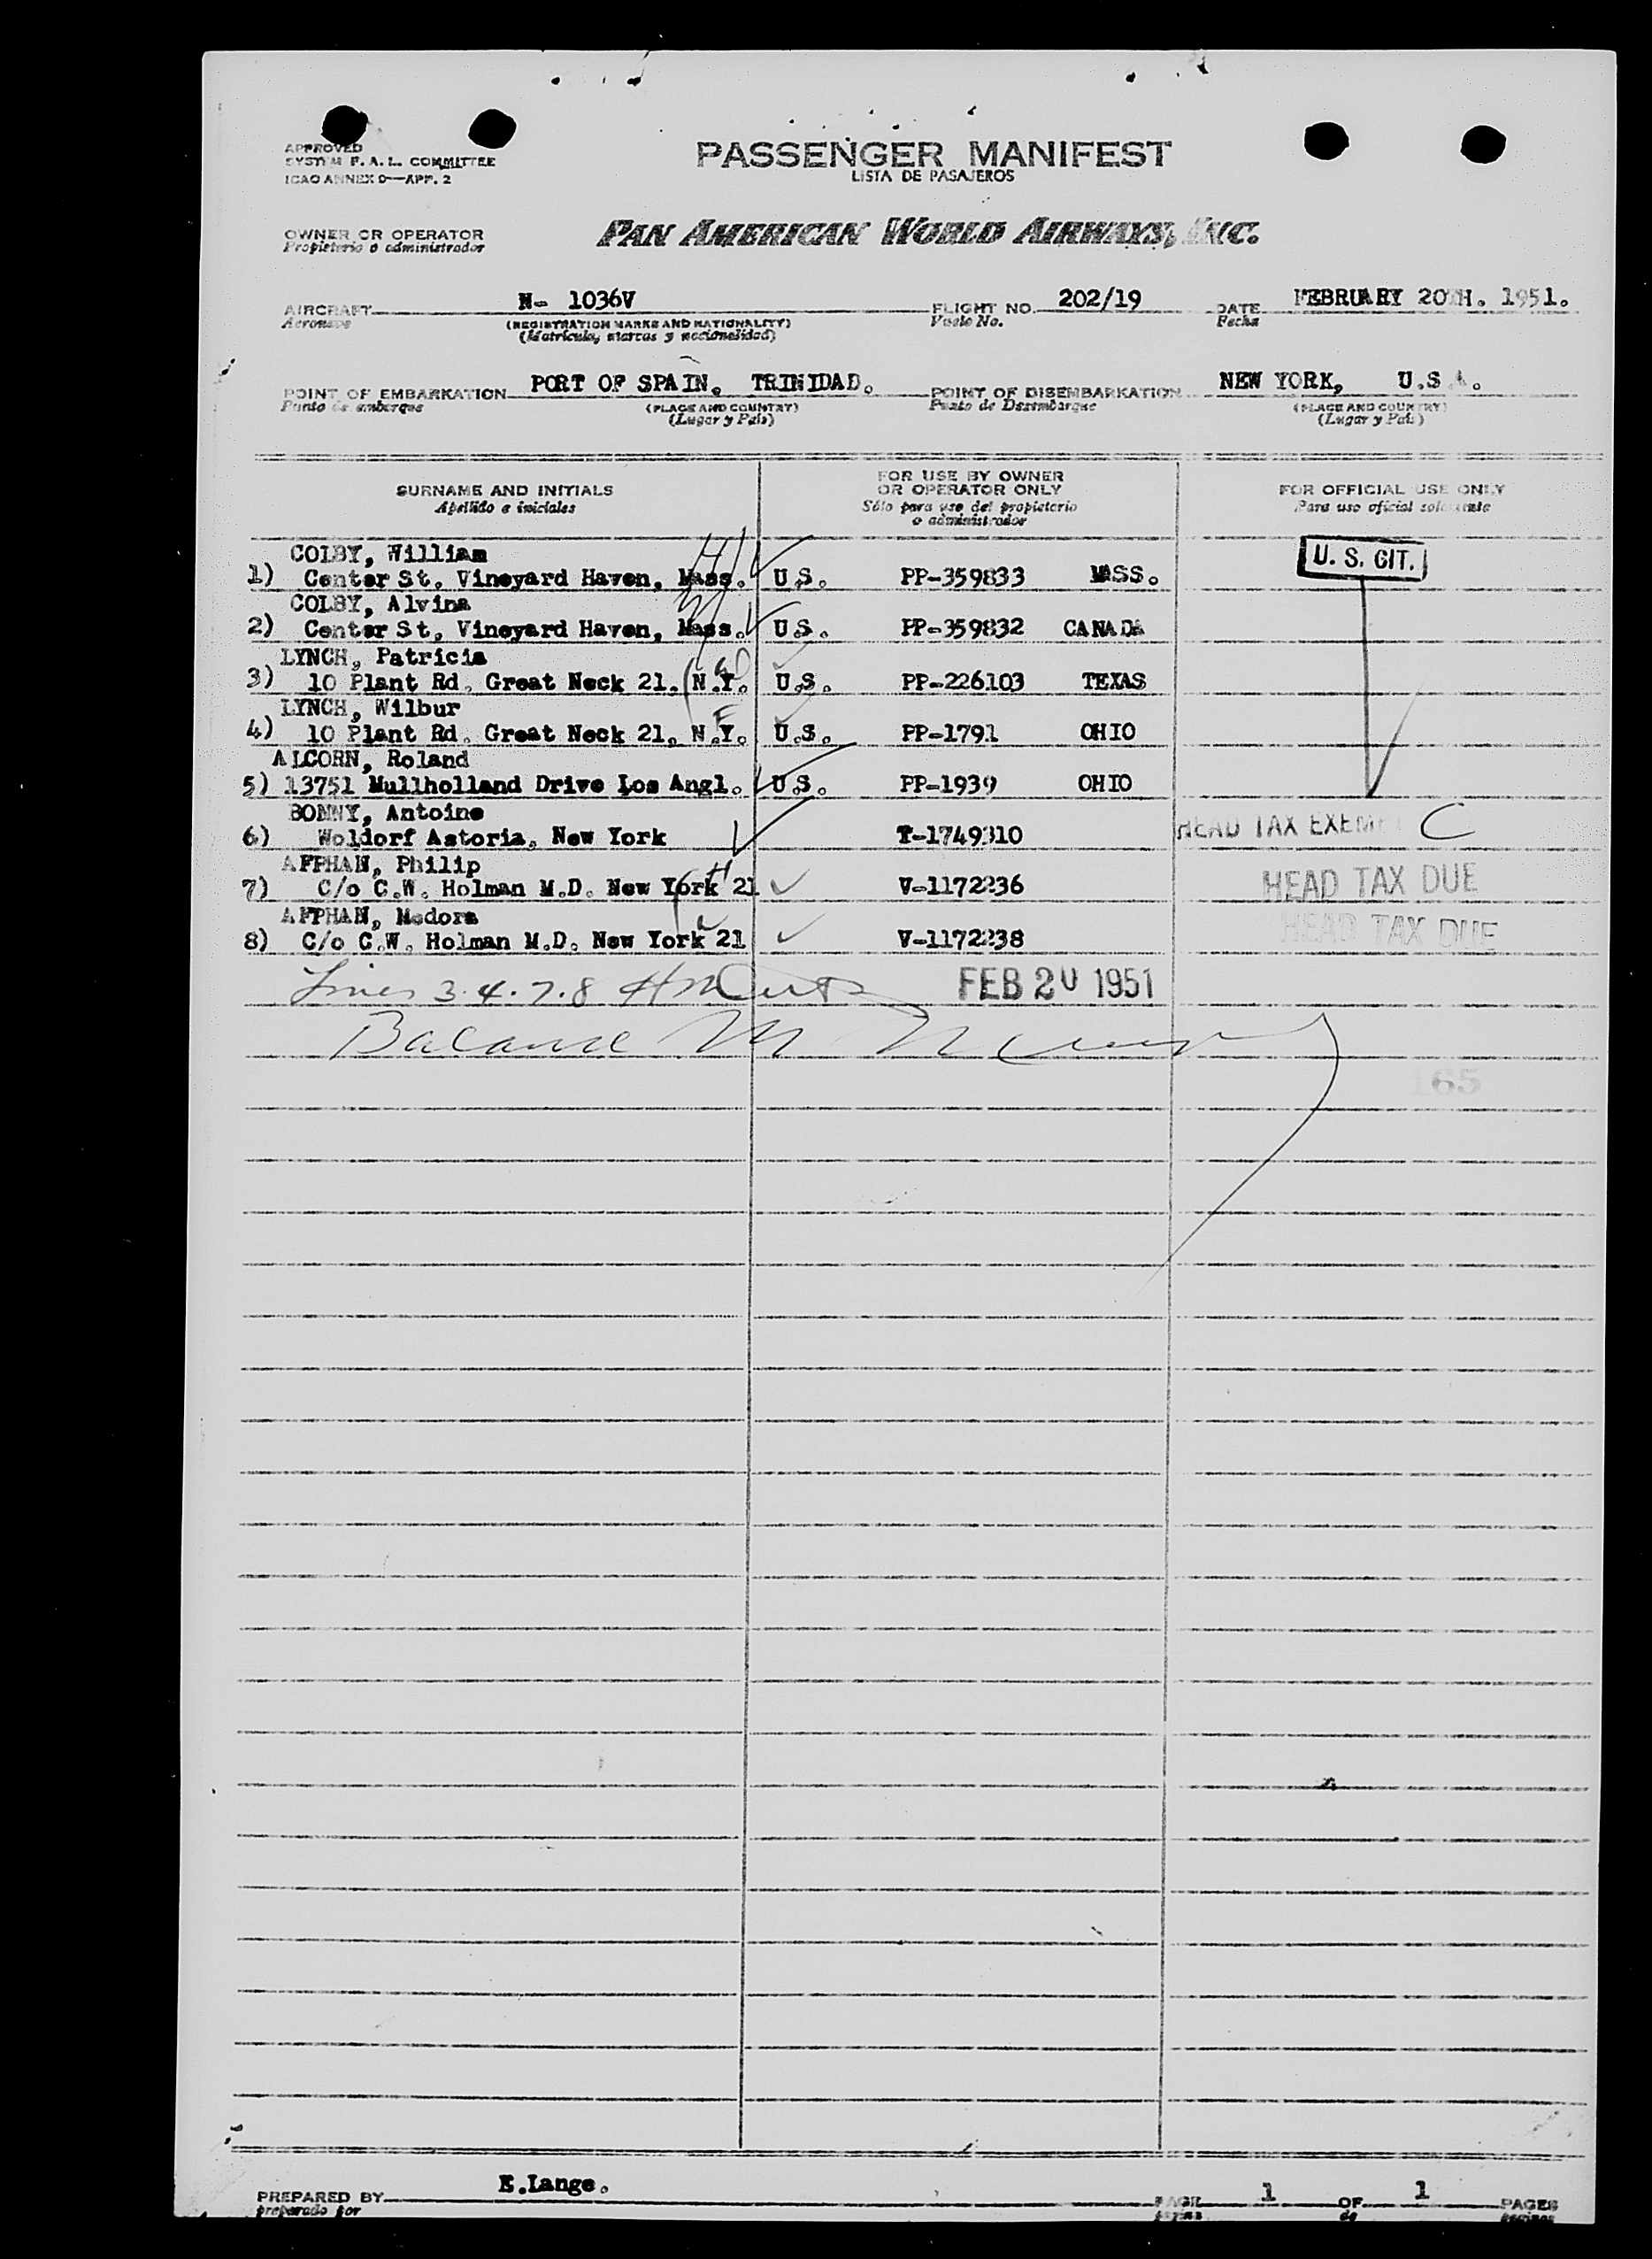 APPROVED
SYSTEM F. A. L. COMMITTEE
ICAO ANNEX 9—APP. 2
PASSENGER MANIFEST
LISTA DE PASAJEROS
OWNER OR OPERATOR
Propietario o administrador
PAN AMERICAN WORLD AIRWAYS, INC.
AIRCRAFT N- 1036V FLIGHT NO. 202/19 DATE FEBRUARY 20TH. 1951.
Aeronave (REGISTRATION MARKS AND NATIONALITY) Vuelo No. Fecha
(Matricula, marcas y nacionalidad)
POINT OF EMBARKATION PORT OF SPAIN. TRINIDAD. POINT OF DISEMBARKATION NEW YORK, U.S.A.
Punto de embarque (PLACE AND COUNTRY) Punto de Desembarque (PLACE AND COUNTRY)
(Lugar y País) (Lugar y País)
SURNAME AND INITIALS
Apellido e iniciales
FOR USE BY OWNER
OR OPERATOR ONLY
Sólo para uso del propietario
o administrador
FOR OFFICIAL USE ONLY
Para uso oficial solamente
COLBY, William
1) Center St. Vineyard Haven, Mass. U.S. PP-359833 MASS. U. S. CIT.
COLBY, Alvina
2) Center St, Vineyard Haven, Mass. U.S. PP-359832 CANADA
LYNCH, Patricia
3) 10 Plant Rd. Great Neck 21. N.Y. U.S. PP-226103 TEXAS
LYNCH, Wilbur
4) 10 Plant Rd. Great Neck 21. N.Y. U.S. PP-1791 OHIO
ALCORN, Roland
5) 13751 Mullholland Drive Los Angl. U.S. PP-1939 OHIO
BONNY, Antoine
6) Woldorf Astoria, New York T-1749310 HEAD TAX EXEMPT C
AFPHAN, Philip
7) C/o C.W. Holman M.D. New York 21 V-1172236 HEAD TAX DUE
AFPHAN, Medora
8) C/o C.W. Holman M.D. New York 21 V-1172238 HEAD TAX DUE
Lines 3.4.7.8 FEB 20 1951
Balance
165
PREPARED BY E.Lange. PAGE 1 OF 1 PAGES
preparado por página de páginas